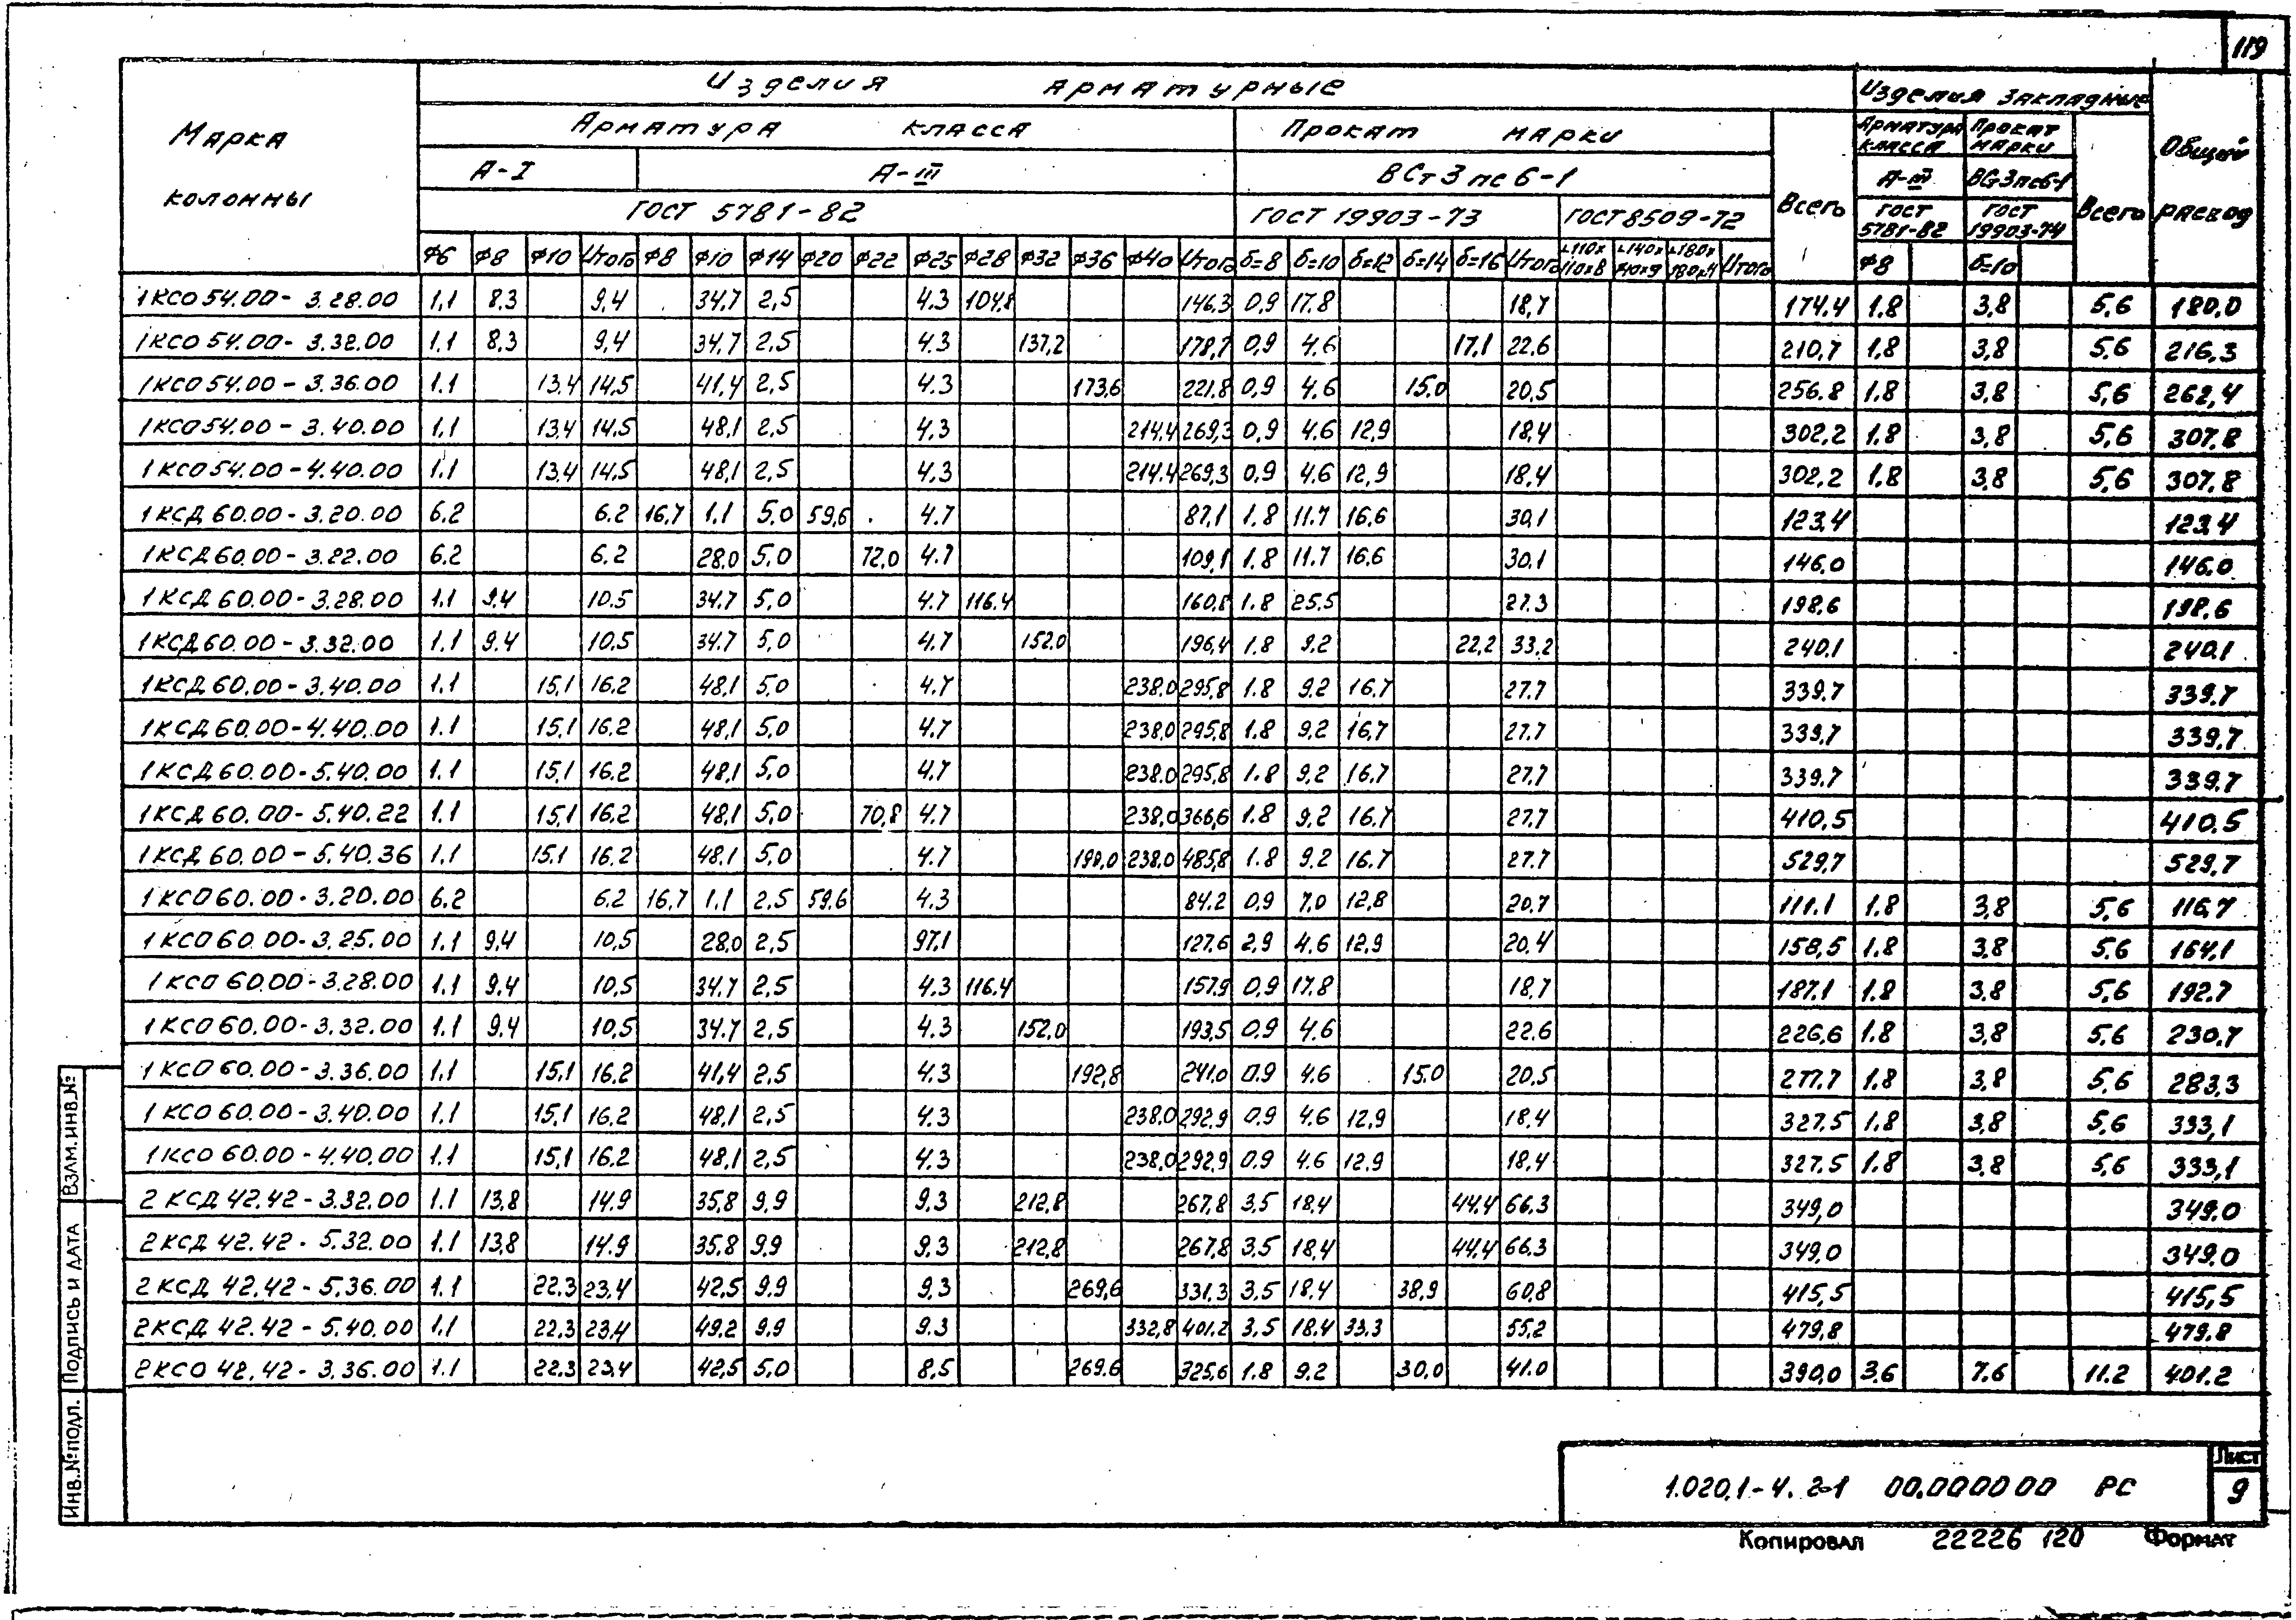 119
Изделия арматурные
Изделия закладные
Марка колонны
Арматура класса
Прокат марки
Всего
Арматура класса
Прокат марки
Всего
Общий расход
А-I
А-III
ВСт3пс6-1
А-III
ВСт3пс6-1
ГОСТ 5781-82
ГОСТ 19903-73
ГОСТ 8509-72
ГОСТ 5781-82
ГОСТ 19903-74
Ф6 Ф8 Ф10 Итого Ф8 Ф10 Ф14 Ф20 Ф22 Ф25 Ф28 Ф32 Ф36 Ф40 Итого б=8 б=10 б=12 б=14 б=16 Итого ∟110х110х8 ∟140х140х9 ∟180х180х11 Итого Ф8 б=10
1КСО 54.00-3.28.00 1,1 8,3 9,4 34,7 2,5 4.3 104,8 146,3 0,9 17.8 18,7 174.4 1.8 3,8 5,6 180,0
1КСО 54.00-3.32.00 1.1 8,3 9,4 34,7 2,5 4.3 137,2 178,7 0,9 4.6 17,1 22.6 210,7 1,8 3,8 5,6 216,3
1КСО 54.00-3.36.00 1.1 13,4 14,5 41,4 2,5 4.3 173,6 221,8 0,9 4,6 15,0 20,5 256.8 1,8 3,8 5,6 262,4
1КСО 54.00-3.40.00 1,1 13,4 14,5 48,1 2,5 4,3 214.4 269,3 0,9 4.6 12,9 18,4 302,2 1.8 3,8 5,6 307,8
1КСО 54.00-4.40.00 1.1 13,4 14,5 48,1 2,5 4.3 214.4 269,3 0,9 4.6 12,9 18,4 302,2 1.8 3,8 5,6 307,8
1КСД 60.00-3.20.00 6.2 6.2 16,7 1.1 5,0 59,6 4.7 87,1 1.8 11.7 16,6 30,1 123,4 123,4
1КСД 60.00-3.22.00 6.2 6.2 28,0 5,0 72,0 4.7 109,1 1.8 11.7 16,6 30.1 146,0 146.0
1КСД 60.00-3.28.00 1.1 9.4 10.5 34.7 5,0 4.7 116.4 160,8 1.8 25.5 27.3 198.6 198.6
1КСД 60.00-3.32.00 1.1 9.4 10.5 34.7 5,0 4.7 152.0 196,4 1.8 9.2 22,2 33,2 240.1 240.1
1КСД 60.00-3.40.00 1.1 15,1 16.2 48,1 5,0 4.7 238.0 295,8 1.8 9.2 16.7 27.7 339.7 339.7
1КСД 60.00-4.40.00 1.1 15,1 16.2 48,1 5,0 4.7 238.0 295,8 1.8 9.2 16,7 27.7 339,7 339,7
1КСД 60.00-5.40.00 1.1 15,1 16.2 48,1 5,0 4.7 238.0 295,8 1.8 9,2 16.7 27,7 339,7 339,7
1КСД 60.00-5.40.22 1.1 15,1 16,2 48,1 5,0 70,8 4.7 238,0 366,6 1.8 9,2 16.7 27,7 410,5 410.5
1КСД 60.00-5.40.36 1.1 15.1 16.2 48,1 5,0 4.7 190,0 238.0 485,8 1.8 9.2 16.7 27.7 529,7 529,7
1КСО 60.00-3.20.00 6.2 6.2 16,7 1.1 2.5 59,6 4.3 84.2 0,9 7,0 12,8 20,7 111.1 1.8 3,8 5,6 116,7
1КСО 60.00-3.25.00 1.1 9,4 10,5 28.0 2,5 97,1 127,6 2,9 4.6 12,9 20,4 158,5 1,8 3,8 5.6 164,1
1КСО 60.00-3.28.00 1.1 9,4 10,5 34.7 2,5 4.3 116.4 157,9 0,9 17.8 18,7 187.1 1.8 3,8 5,6 192.7
1КСО 60.00-3.32.00 1.1 9.4 10,5 34.7 2,5 4.3 152,0 193,5 0.9 4.6 22.6 226,6 1.8 3,8 5,6 230,7
1КСО 60.00-3.36.00 1.1 15,1 16.2 41,4 2,5 4.3 192,8 241,0 0.9 4.6 15.0 20,5 277.7 1.8 3,8 5,6 283,3
1КСО 60.00-3.40.00 1.1 15,1 16.2 48,1 2,5 4.3 238.0 292,9 0,9 4.6 12,9 18.4 327.5 1.8 3,8 5,6 333,1
1КСО 60.00-4.40.00 1.1 15,1 16.2 48,1 2,5 4.3 238,0 292,9 0.9 4.6 12.9 18,4 327.5 1.8 3,8 5,6 333,1
2КСД 42.42-3.32.00 1.1 13,8 14.9 35,8 9,9 9.3 212,8 267,8 3,5 18,4 44,4 66,3 349,0 349.0
2КСД 42.42-5.32.00 1.1 13,8 14.9 35.8 9,9 9,3 212,8 267,8 3,5 18,4 44,4 66.3 349,0 349.0
2КСД 42.42-5.36.00 1.1 22.3 23,4 42,5 9.9 9,3 269,6 331,3 3,5 18.4 38,9 60,8 415,5 415,5
2КСД 42.42-5.40.00 1.1 22,3 23,4 49,2 9,9 9.3 332,8 401.2 3,5 18.4 33.3 55,2 479,8 479,8
2КСО 42.42-3.36.00 1.1 22.3 23,4 42,5 5,0 8,5 269.6 325,6 1.8 9.2 30,0 41.0 390,0 3,6 7,6 11.2 401.2
Взам.инв.№
Подпись и дата
Инв.№подл.
1.020.1-4. 2-1 00.000000 РС
Лист
9
Копировал 22226 120 Формат